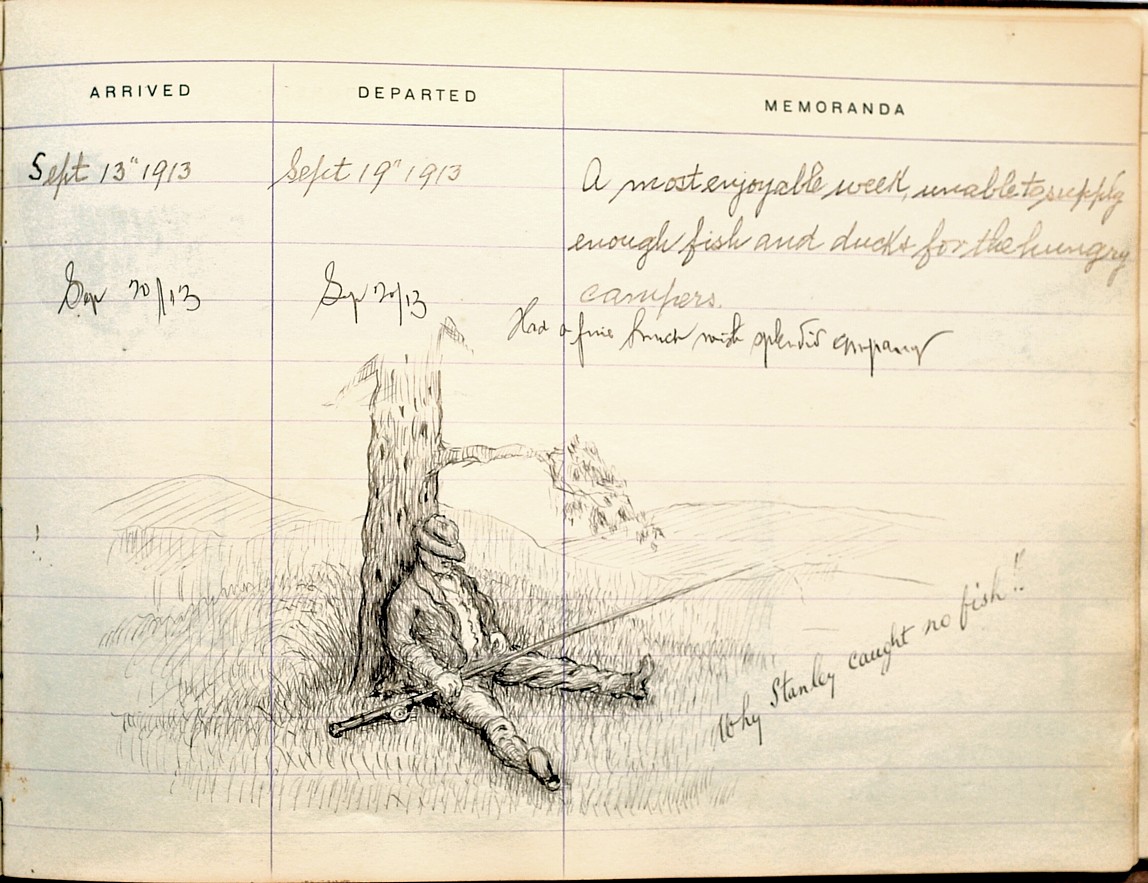 ARRIVED DEPARTED MEMORANDA
Sept 13" 1913 Sept 19" 1913 A most enjoyable week, unable to supply
enough fish and ducks for the hungry
campers.
Sep 20/13 Sep 20/13
Had a fine lunch with splendid company
Why Stanley caught no fish!!